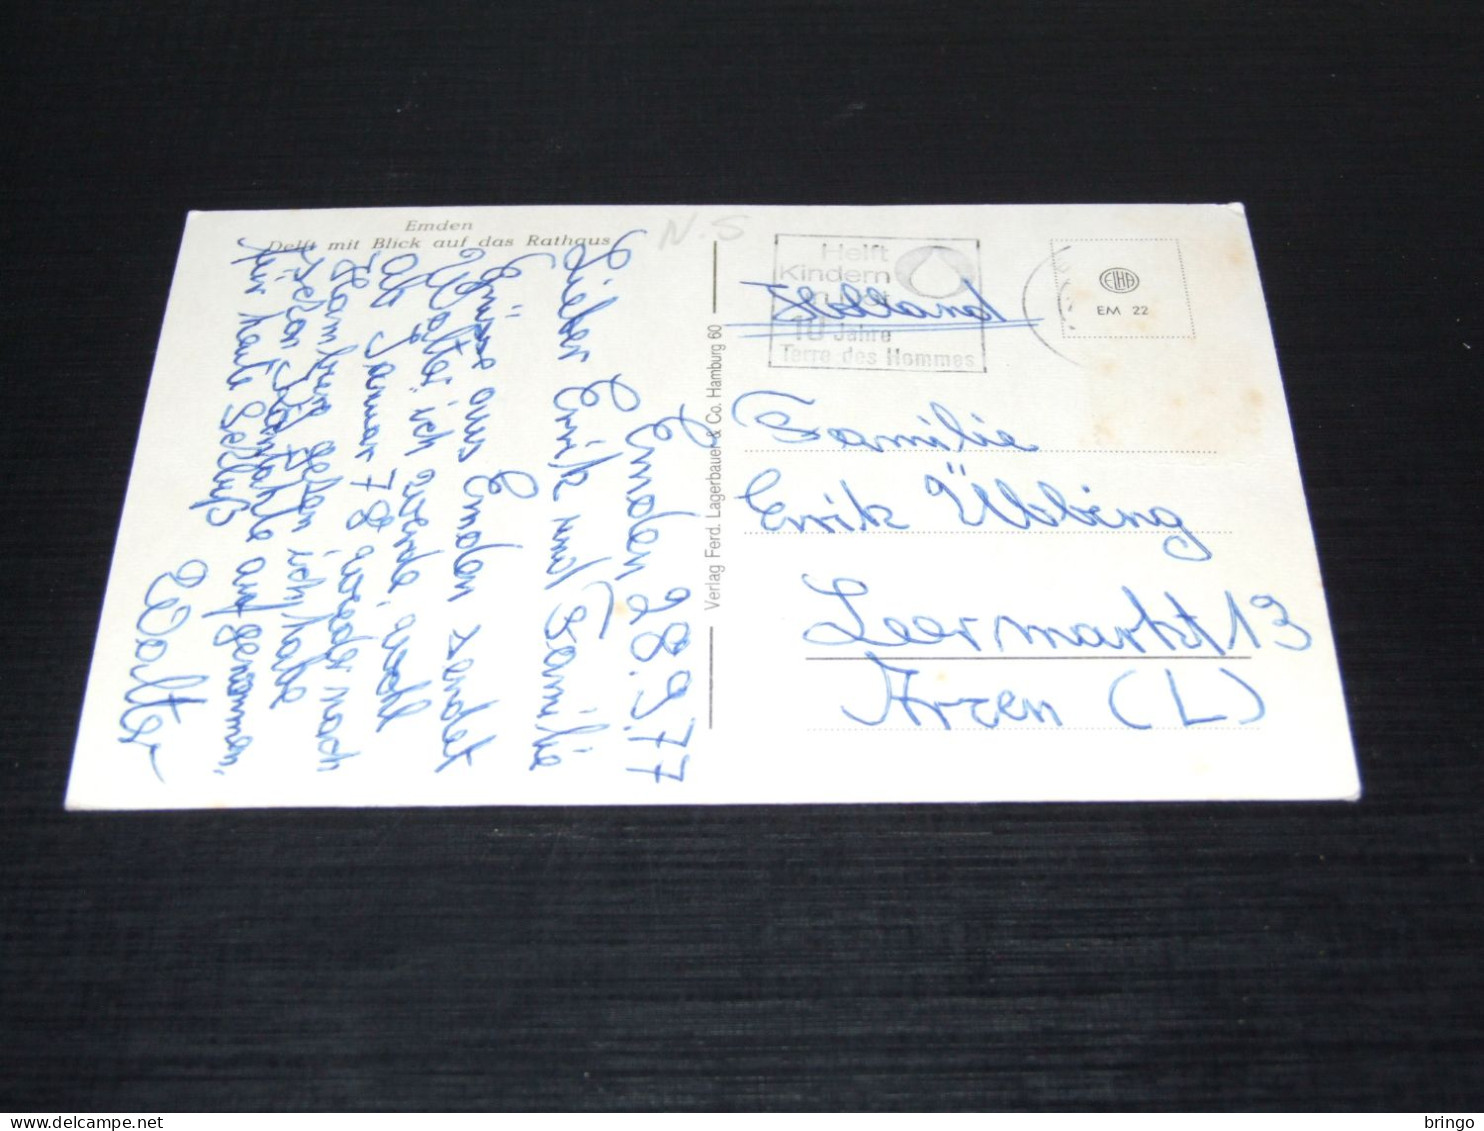 Emden
Delft mit Blick auf das Rathaus
N.S
Emden 28.9.77
Lieber Erik und Familie
Grüsse aus Emden sendet
Walter, ich werde, wohl
Ab Januar 78 wieder nach
Hamburg gesten ich habe
auf genommen,
für heute Schluß
Walter
Verlag Ferd. Lagerbauer & Co. Hamburg 60
Helft
Kindern
in Not
10 Jahre
Terre des Hommes
Holland
ELHA
EM 22
Familie
Errik Übbing
Leermarkt 13
Arcen (L)
www.delcampe.net
bringo